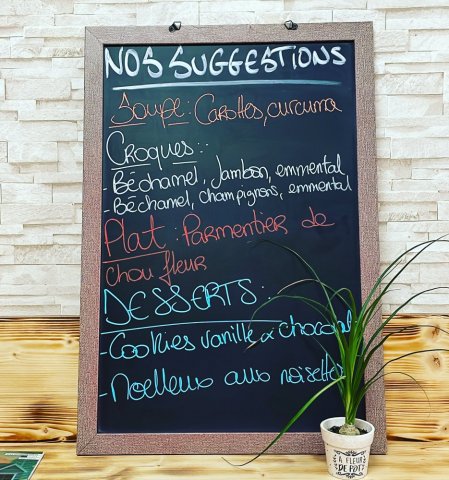 NOS SUGGESTIONS
Soupe : Carottes, curcuma
Croques :
- Béchamel, Jambon, emmental
- Béchamel, champignons, emmental
Plat : Parmentier de
chou fleur
DESSERTS :
- Cookies vanille & chocolat
- Moelleux aux noisettes
A FLEUR
DE POT